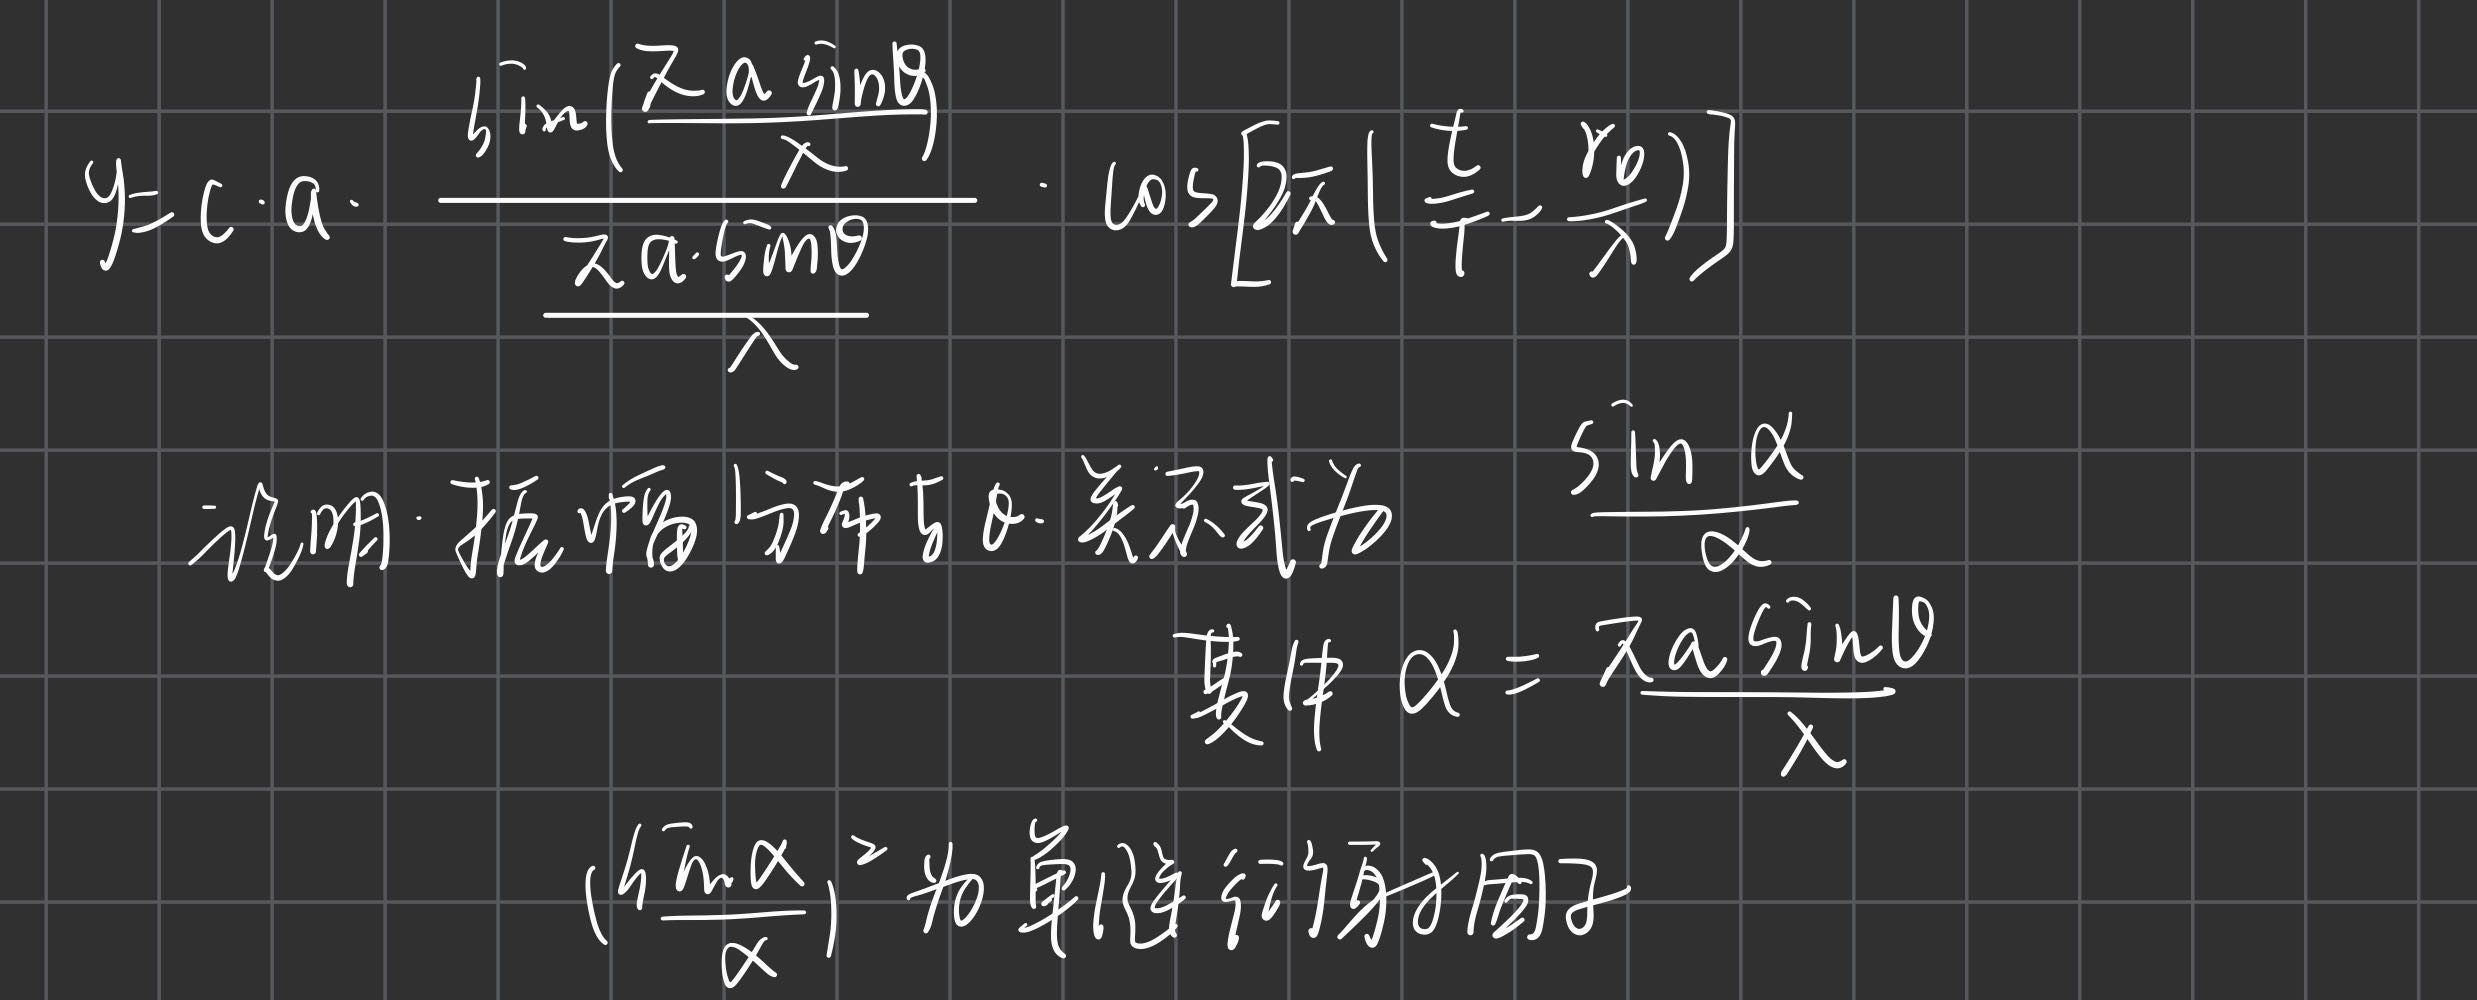 y = c · a · \frac{\sin(\frac{π a \sinθ}{λ})}{\frac{π a · \sinθ}{λ}} · \cos[2π(\frac{t}{T} - \frac{r_0}{λ})]
说明·振幅分布与θ·关系式为 \frac{\sin α}{α}
其中 α = \frac{π a \sinθ}{λ}
(\frac{\sin α}{α})² 为单缝衍射因子